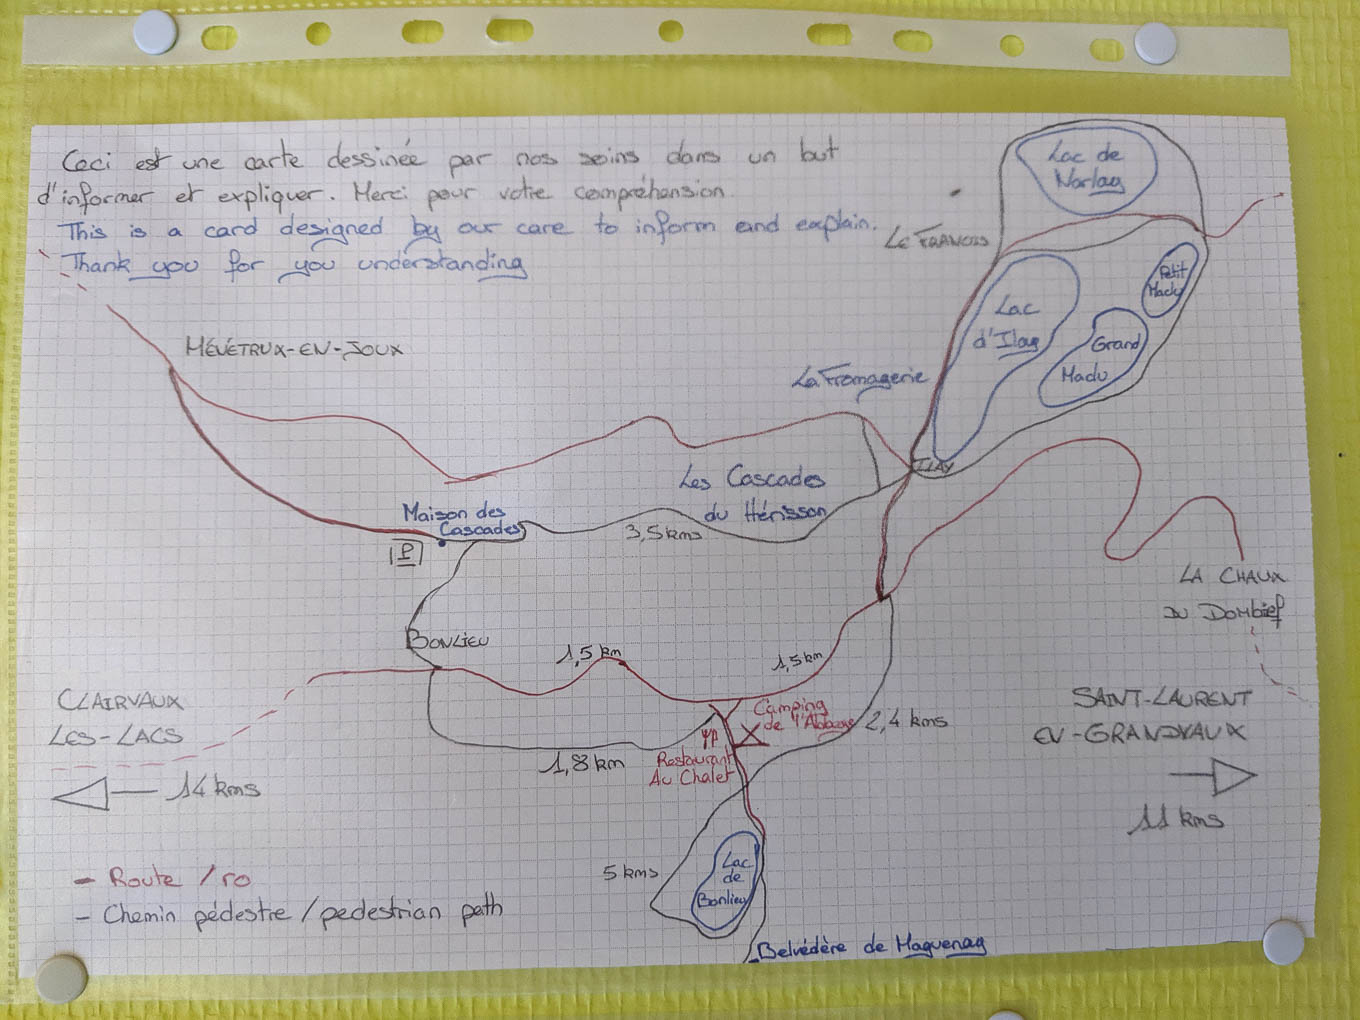 Ceci est une carte dessinée par nos soins dans un but
d'informer et expliquer. Merci pour votre compréhension.
This is a card designed by our care to inform and explain.
Thank you for you understanding
Lac de
Narlay
Le FRANOIS
Petit
Maclu
Lac
d'Ilay
Grand
Maclu
MÉNÉTRUX-EN-JOUX
La Fromagerie
ILAY
Les Cascades
du Hérisson
Maison des
Cascades
P
3,5 kms
LA CHAUX
DU DOMBIEF
BONLIEU
1,5 km
1,5 km
CLAIRVAUX
LES-LACS
14 kms
SAINT-LAURENT
EN-GRANDVAUX
11 kms
Camping
de l'Abbaye
2,4 kms
Restaurant
Au Chalet
1,8 km
5 kms
Lac
de
Bonlieu
- Route / ro
- Chemin pédestre / pedestrian path
Belvédère de Maguenay